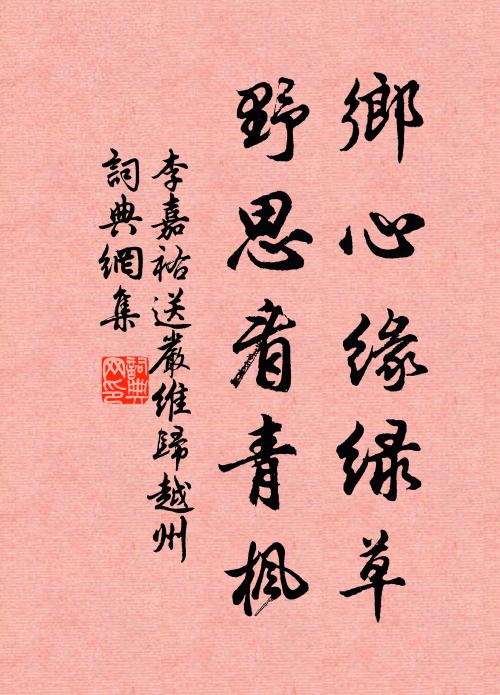 鄉心緣綠草
野思看青楓
李嘉祐送嚴維歸越州
詞典網集
詞典网印